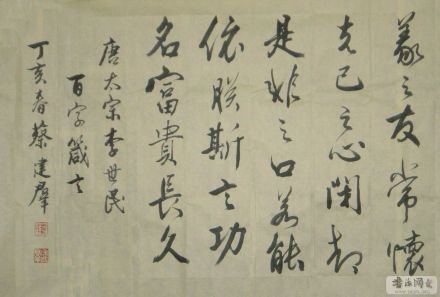 義之友常懷
克己之心閉却
是非之口若能
依朕斯言功
名富貴長久
唐太宗李世民
百字箴言
丁亥春蔡建羣